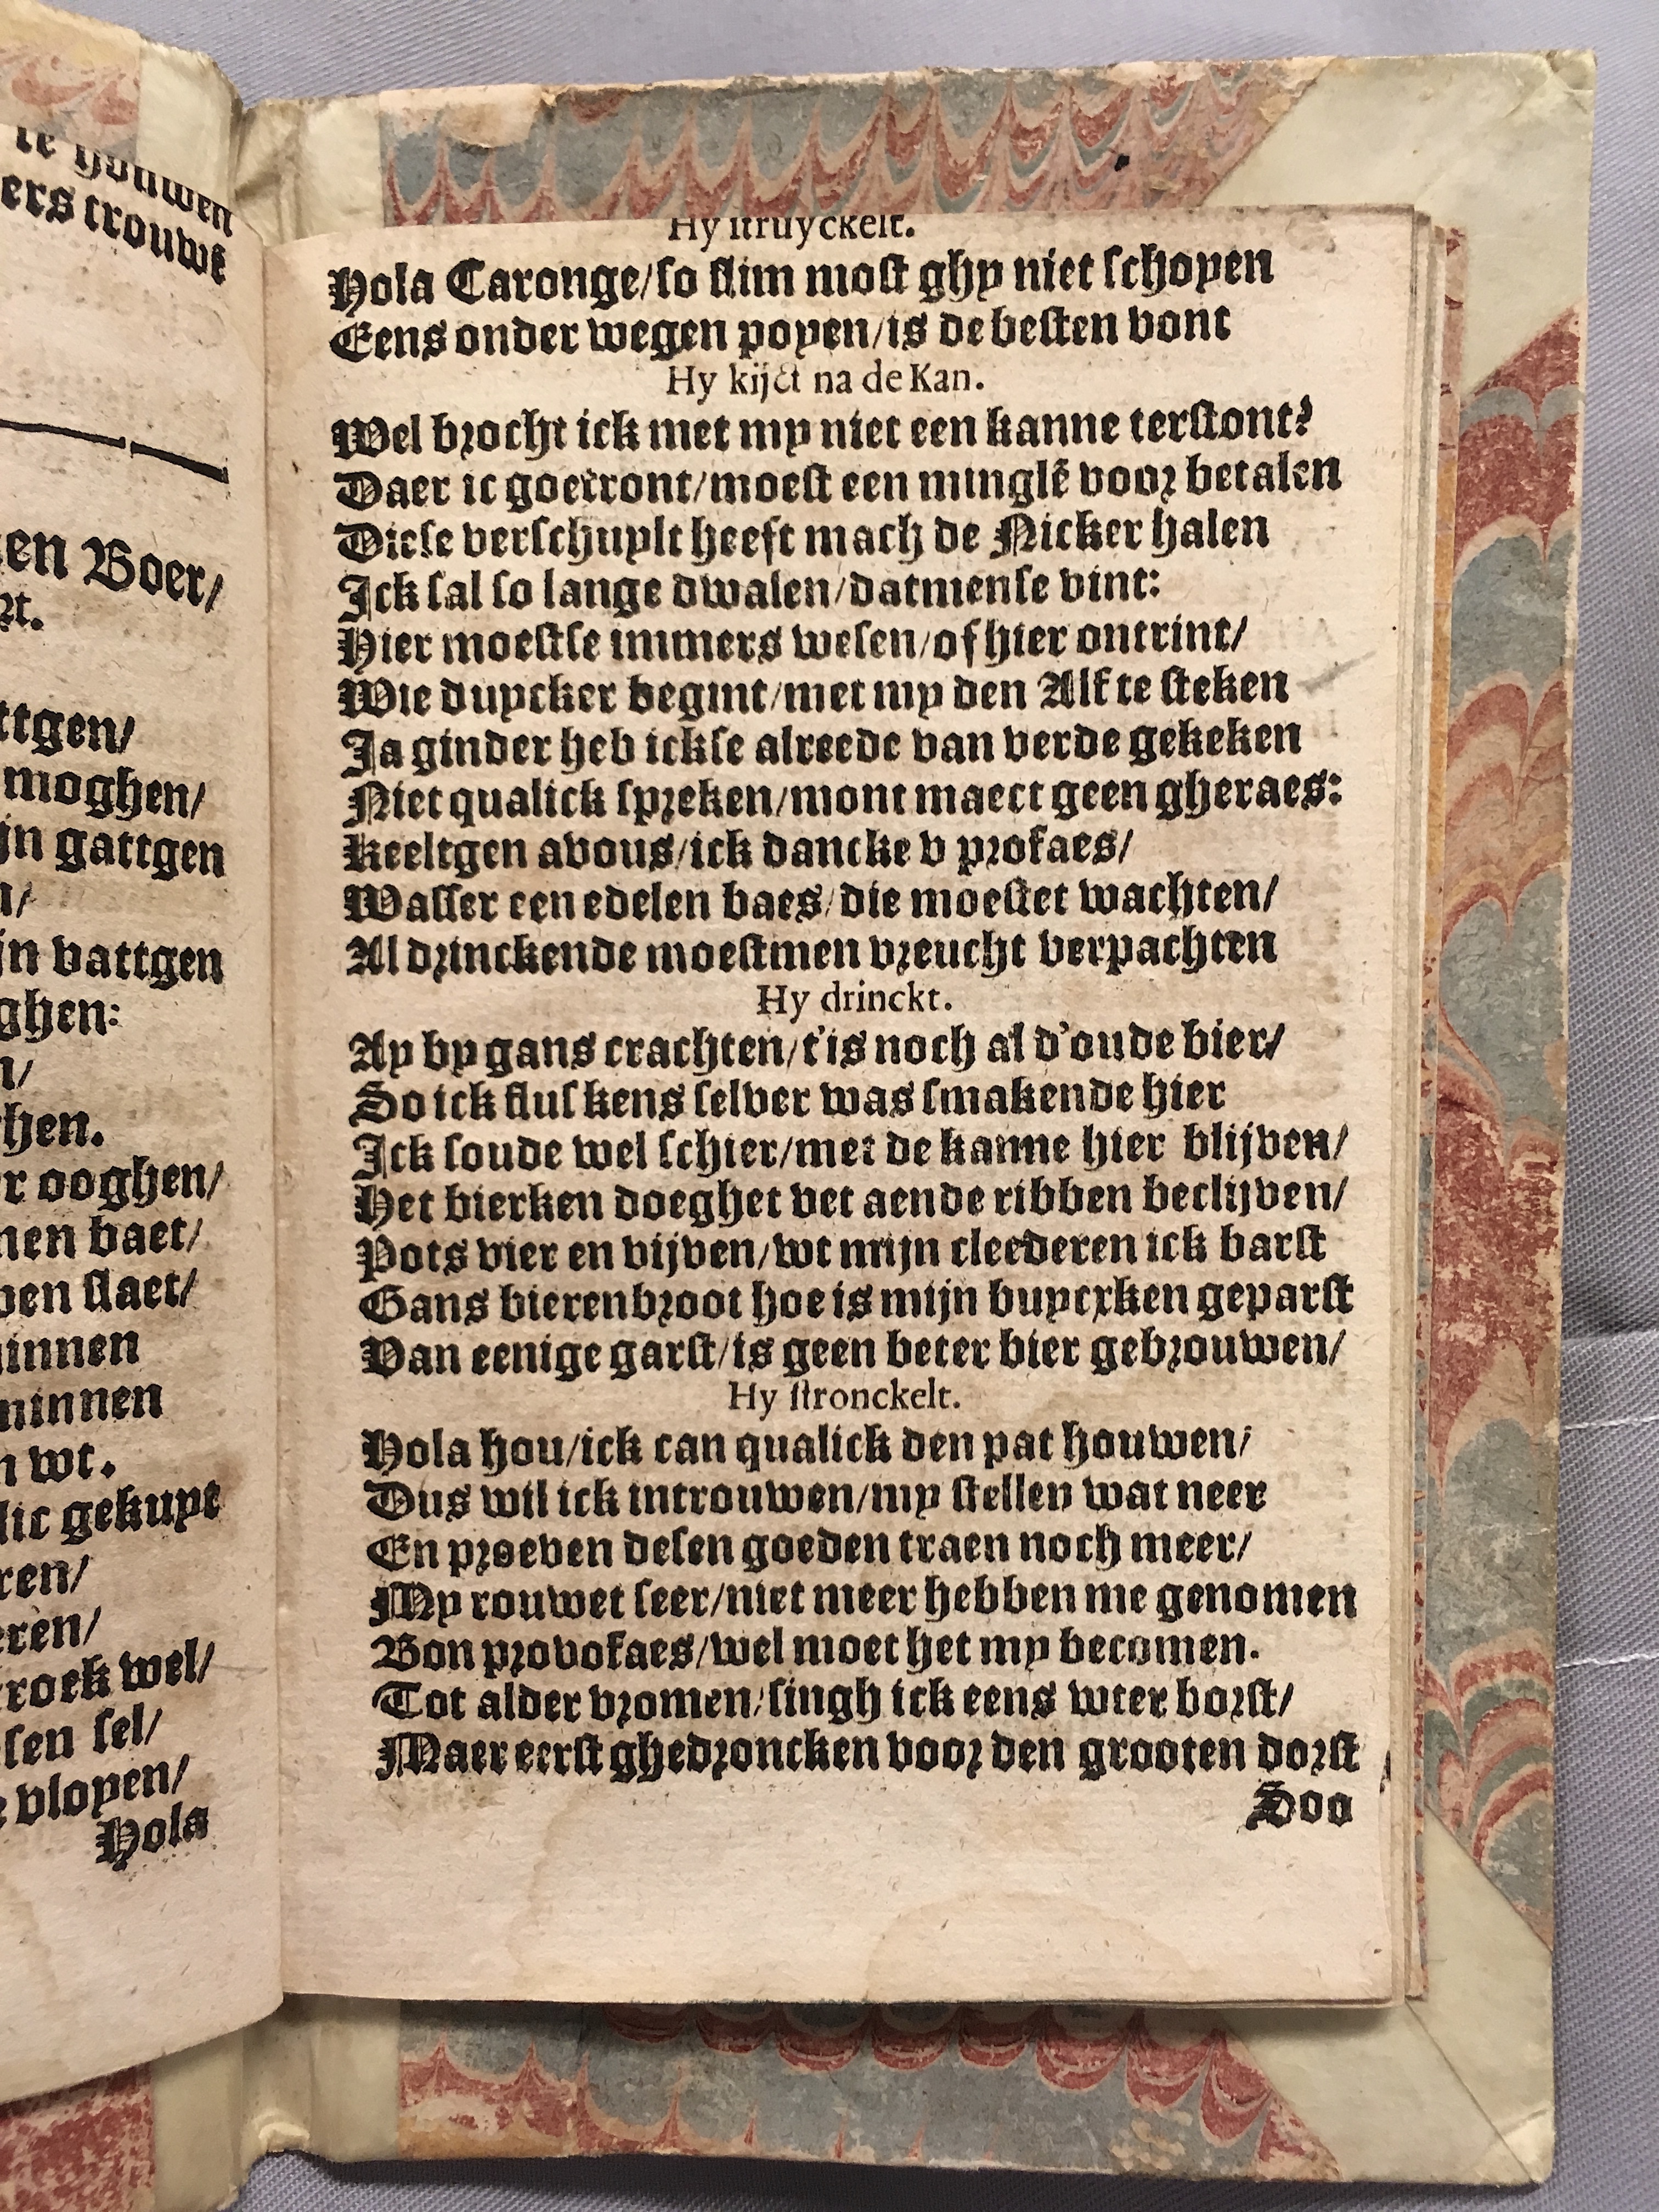 te houwen
ers trouwẽ
en Boer/
rt.
ttgen/
moghen/
jn gattgen
n/
jn vattgen
ghen:
n/
hen.
r ooghen/
nen baet/
pen slaet/
innen
ninnen
n wt.
lic gekuypt
ren/
eren/
roek wel/
sen sel/
vlopen/
Hola
Hy struyckelt.
Hola Caronge/so slim most ghy niet schopen
Eens onder wegen popen/is de besten vont
Hy kijct na de Kan.
Wel brocht ick met my niet een kanne terstont?
Daer ic goet ront/moest een minglẽ voor betalen
Diese verschuylt heeft mach de Nicker halen
Ick sal so lange dwalen/datmense vint:
Hier moestse immers wesen/of hier ontrint/
Wie duycker begint/met my den Alf te steken
Ja ginder heb ickse alreede van verde gekeken
Niet qualick spreken/mont maect geen gheraes:
Keeltgen avous/ick dancke v profaes/
Wasser een edelen baes/die moestet wachten/
Al drinckende moestmen vreucht verpachten
Hy drinckt.
Ay by gans crachten/t'is noch al d'oude bier/
So ick fluskens selver was smakende hier
Ick soude wel schier/met de kanne hier blijven/
Het bierken doeghet vet aende ribben beclijven/
Pots vier en vijven/wt mijn cleederen ick barst
Gans bierenbroot hoe is mijn buycxken geparst
Van eenige garst/is geen beter bier gebrouwen/
Hy stronckelt.
Hola hou/ick can qualick den pat houwen/
Dus wil ick introuwen/my stellen wat neer
En proeven desen goeden traen noch meer/
My rouwet seer/niet meer hebben me genomen
Bon provofaes/wel moet het my becomen.
Tot alder vromen/singh ick eens wter borst/
Maer eerst ghedroncken voor den grooten dorst
Soo